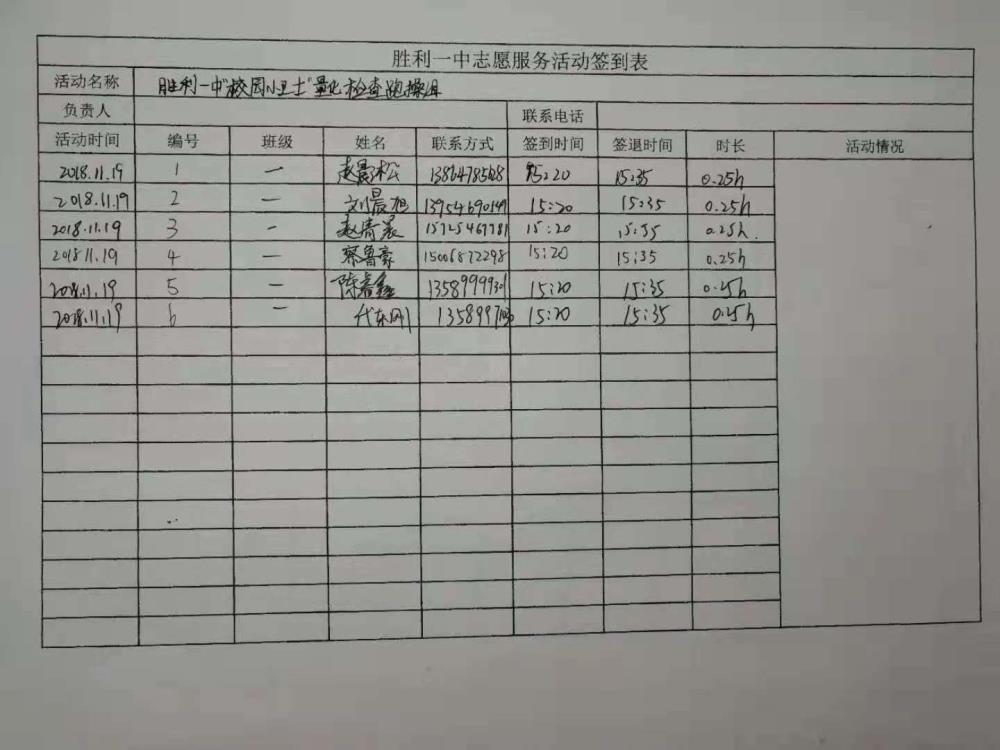 胜利一中志愿服务活动签到表
活动名称 胜利一中"校园小卫士"量化检查跑操组
负责人 联系电话
活动时间 编号 班级 姓名 联系方式 签到时间 签退时间 时长 活动情况
2018.11.19 1 一 赵晨松 15:20 15:35 0.25h
2018.11.19 2 一 刘晨旭 13954690149 15:20 15:35 0.25h
2018.11.19 3 一 赵清晨 15725467781 15:20 15:35 0.25h.
2018 11.19 4 一 蔡鲁豪 15006872298 15:20 15:35 0.25h
2018.11.19 5 一 陈睿鑫 13589999301 15:20 15:35 0.25h
2018.11.19 6 一 代东刚 15:20 15:35 0.25h